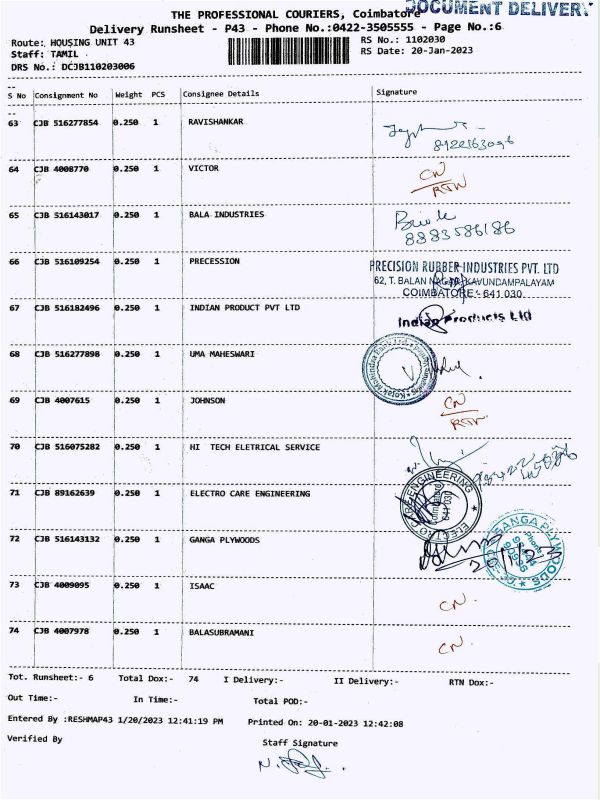 DOCUMENT DELIVERY
THE PROFESSIONAL COURIERS, Coimbatore
Delivery Runsheet - P43 - Phone No.:0422-3505555 - Page No.:6
Route: HOUSING UNIT 43 RS No.: 1102030
Staff: TAMIL RS Date: 20-Jan-2023
DRS No.: DCJB110203006
S No Consignment No Weight PCS Consignee Details Signature
63 CJB 516277854 0.250 1 RAVISHANKAR
8922163096
64 CJB 4008770 0.250 1 VICTOR CN
RTN
65 CJB 516143017 0.250 1 BALA INDUSTRIES
8883586186
66 CJB 516109254 0.250 1 PRECESSION PRECISION RUBBER INDUSTRIES PVT. LTD
62, T. BALAN NAGAR, KAVUNDAMPALAYAM
COIMBATORE - 641 030.
67 CJB 516182496 0.250 1 INDIAN PRODUCT PVT LTD Indian Products Ltd
68 CJB 516277898 0.250 1 UMA MAHESWARI Kotak Mahindra Bank Ltd
69 CJB 4007615 0.250 1 JOHNSON CN
RTN
70 CJB 516075282 0.250 1 HI TECH ELETRICAL SERVICE
71 CJB 89162639 0.250 1 ELECTRO CARE ENGINEERING ELECTRO CARE ENGINEERING
Coimbatore
72 CJB 516143132 0.250 1 GANGA PLYWOODS GANGA PLYWOODS
Phone
20/1/23
73 CJB 4009095 0.250 1 ISAAC CN.
74 CJB 4007978 0.250 1 BALASUBRAMANI CN.
Tot. Runsheet:- 6 Total Dox:- 74 I Delivery:- II Delivery:- RTN Dox:-
Out Time:- In Time:- Total POD:-
Entered By :RESHMAP43 1/20/2023 12:41:19 PM Printed On: 20-01-2023 12:42:08
Verified By Staff Signature